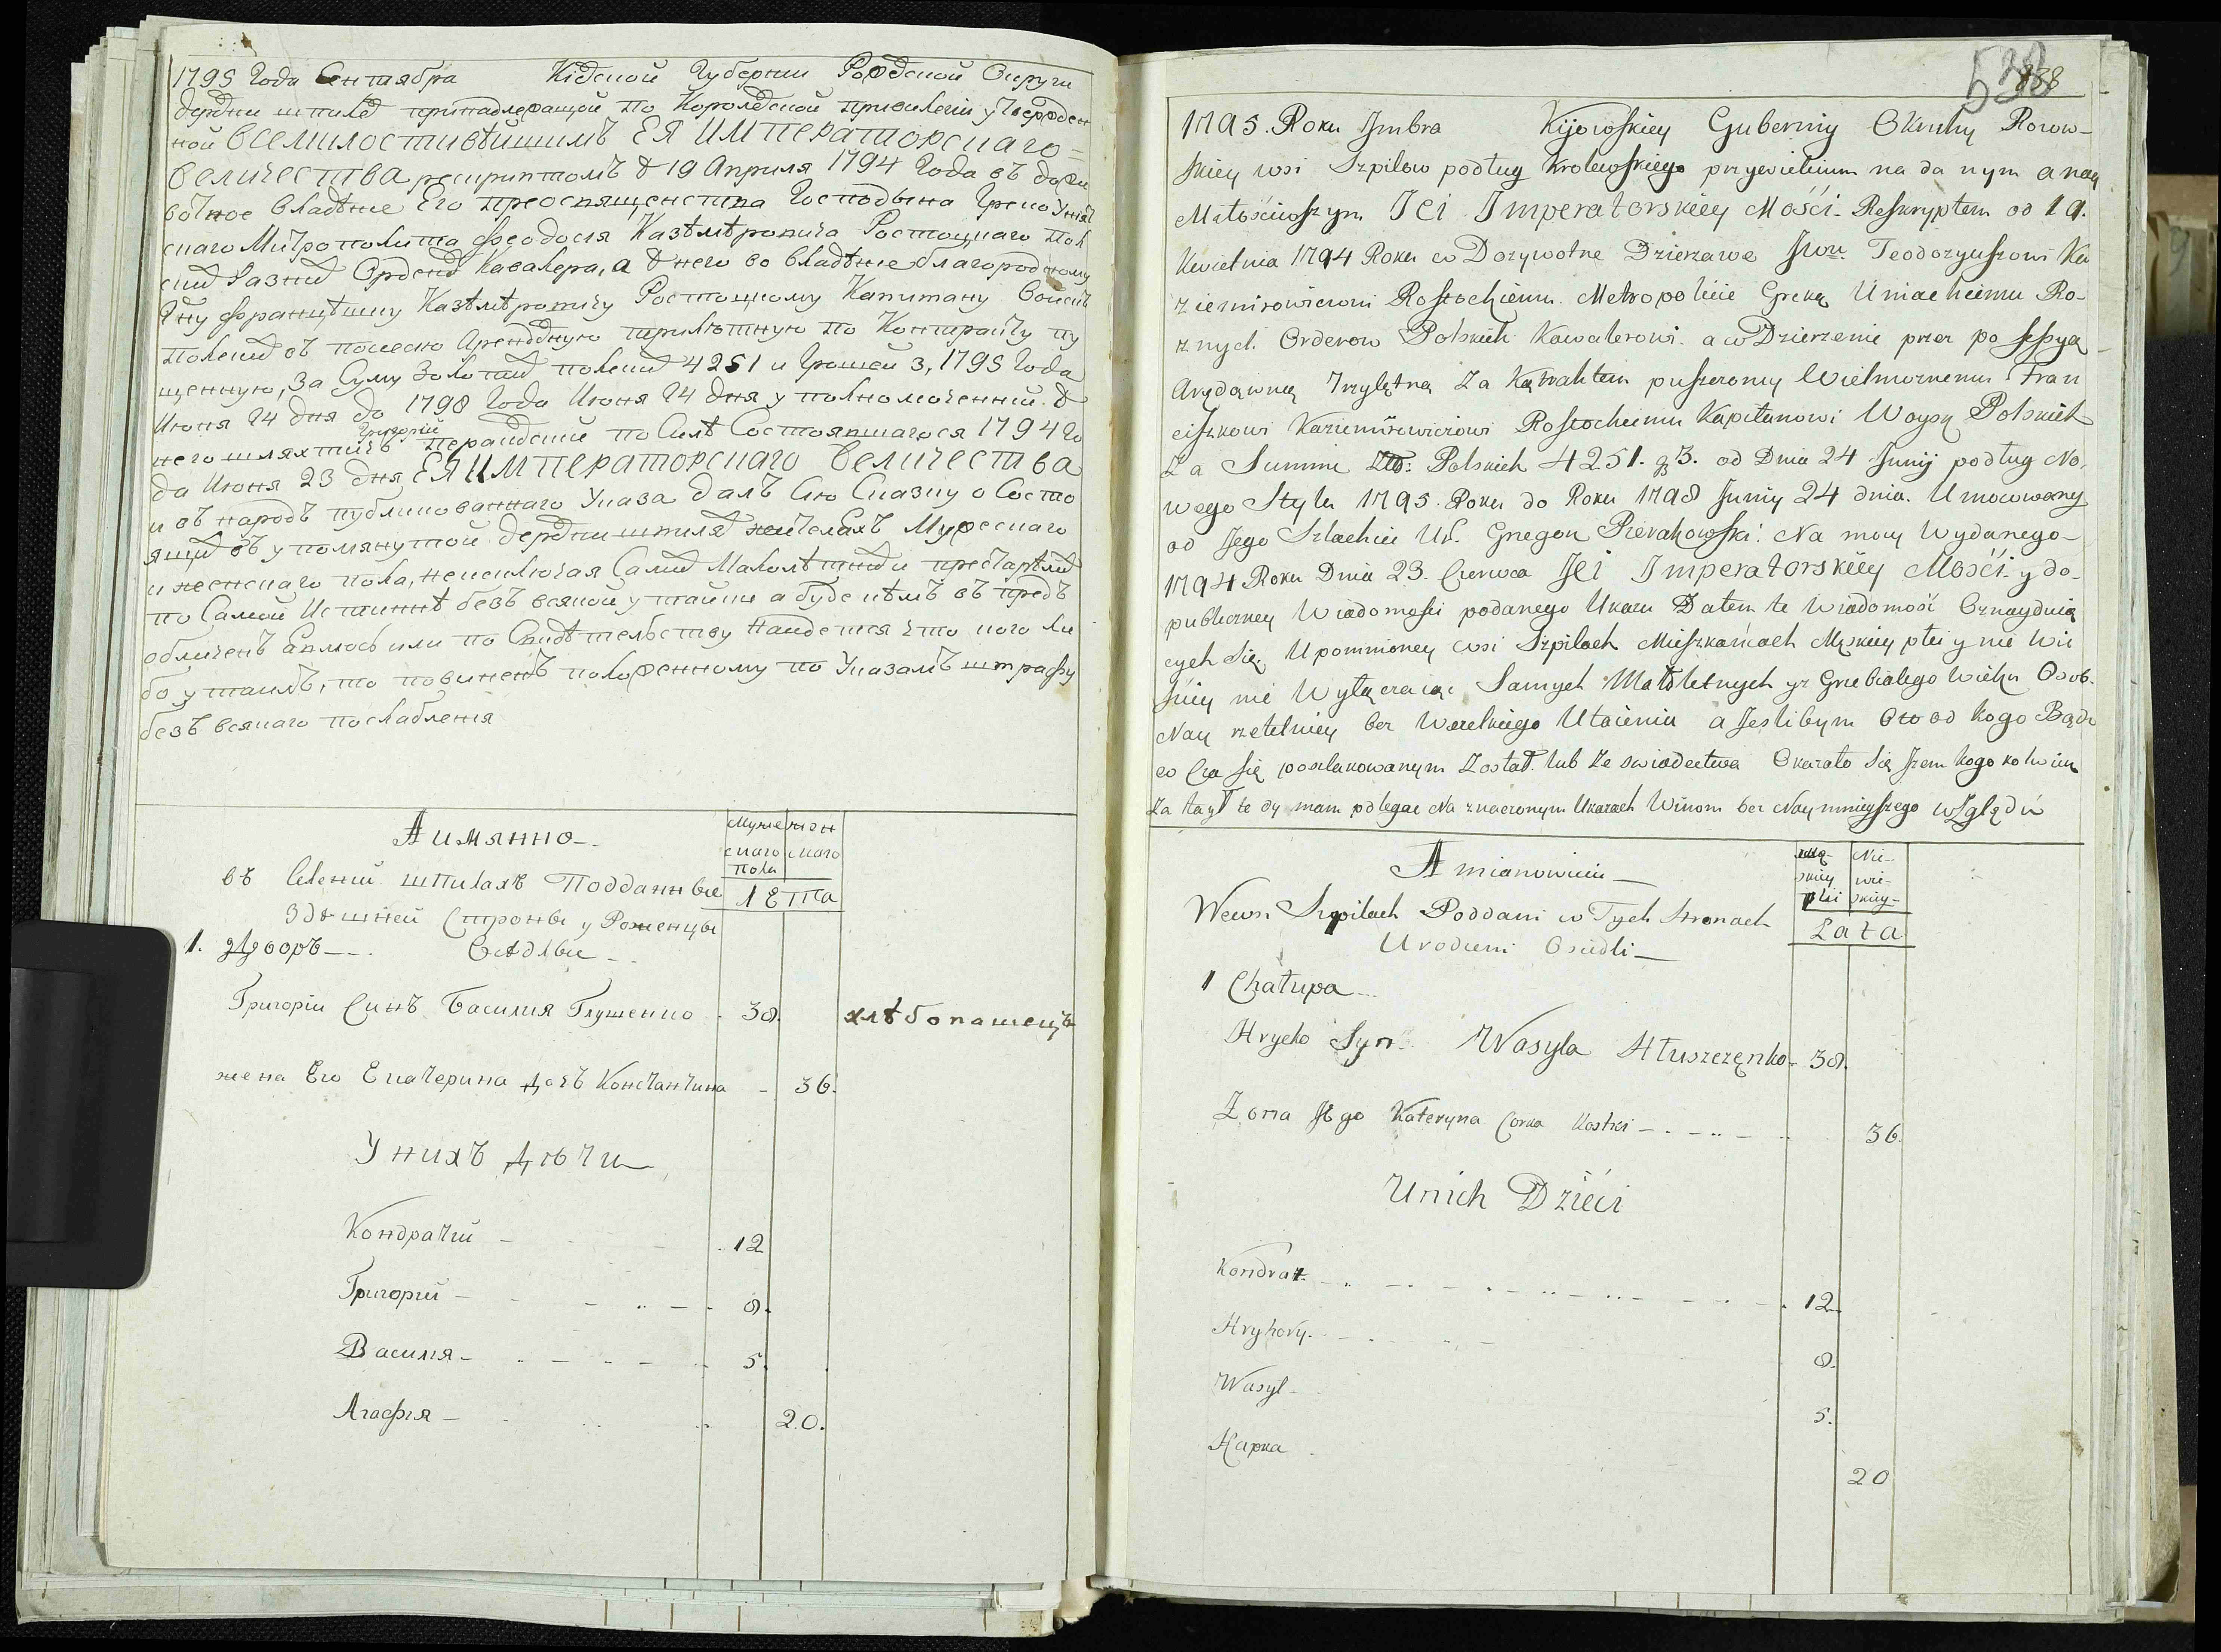 1795 Года Сентября Кіевской Губерни Округи
деревни шпилев принадлежащой по Королевской привилегіи утвержден
ной ВСЕМИЛОСТИВѢЙШИМЪ ЕЯ ИМПЕРАТОРСКАГО=
ВЕЛИЧЕСТВА рескриптомъ 19 Априля 1794 Года въ дожи
вотное Владѣние Его преосвященства Господына Греко Унят
скаго Митрополита Феодося Казѣмѣровича Ростоцкаго Пол
ских Разних Орденов Кавалера, а него во Владѣние благородному
Францѣшку Казѣмѣровичу Ростоцкому Капитану Войскъ
Полских въ посесию Арендовную трилѣтную по Контракту пу
щенную, за Суму Золотих полских 4251 и Грошей 3, 1795 Года
Июня 24 дня до 1798 Года Июня 24 дня уполномоченний
него шляхтичъ Григорий по Силѣ Состоявшагося 1794 Го
да Июня 23 дня ЕЯ ИМПЕРАТОРСКАГО ВЕЛИЧЕСТВА
и въ народъ публикованнаго Указа далъ Сию Сказку о Состо
ящих въ упомянутой деревни шпилях жителахъ Мужескаго
и женскаго пола, неисключая Самих Малолѣтних и престарѣлих
по Самой Истиннѣ безъ всякой утайки а буде кѣмъ въ предъ
обличенъ или по Свидѣтелству найдется что кого ли
бо утаилъ, то повиненъ положенному по Указамъ штрафу
безъ всякаго послабления
А имянно-
муже скаго пола
жен скаго
ЛЕТА
въ Селений шпилахъ Подданные
Здѣшней Стороны уроженцы
1. Дворъ- - . Сѣдлые - -
Григорій Синъ Василия Глушенко - 38. хлѣбопашецъ
жена Его Екатерина дочъ Константина - 36.
У нихъ дѣти
Кондратий - 12
Григорий - 8.
Василия - 5.
Агафия - 20.
538
838
1795. Roku Jmbra Kijowskiey Guberniy Okruhy
skiey wsi Szpilow podług Krolewskiego przywielium na da nym a nay
Miłościwszym JEI Imperatorskiey Mości. Reskryptem od 19.
Kwietnia 1794 Roku w Dozywotne Dzierzawe Teodozyuszowi Ka
ziemirowiczowi Rostockiemu. Metropolicie Greko Uniackiemu Ro-
znych Orderow Polskich Kawalerowi. a w Dzierzenie przez possessyą
Arędowną Trzyletną Za Kątraktem puszczoną Wielmoznemu Fran
ciszkowi Kaziemirowiczowi Rostockiemu Kapitanowi Woysk Polskich
Za Summe Zło: Polskich 4251. g 3. od Dnia 24 Juniy podług No-
wego Stylu 1795. Roku do Roku 1798 Juniy 24 dnia. Umocowany
od Jego Szlachcic Ur. Gregor Na mocy Wydanego-
1794 Roku Dnia 23. Czerwca JEI Imperatorskiey Mości y do-
publiczney Wiadomości podanego Ukazu Datem te Wiadomość Oznaydują
cych się Upomnioney wsi Szpilach Mieszkańcach Męskiey płci y nie wie
ściey nie Wyłączaiąc Samych Małoletnych y z Grzebiałego wieku Osob.
Nay rzetelniey bez Wszelkiego Utaieniu a Jeslibym Oto od kogo Bądz
w Czą się poszlakowanym Został. lub Ze swiadectwa Okazało się Jzem kogo kolwiek
Za taył te dy mam podlegać Na znaczonym Ukazach Winom bez Naymnieyszego względu
A mianowicie-
mę- skiey płci
Nie- wie- skiey-
Lata
Wewsi Szpilach Poddani w Tych Stronach
Urodzeni Osiedli-
1 Chałupa-
Hrycko Syn Wasyla Hłuszczęnko- 38.
Zona Jego Kateryna Corka Kostki - 36.
Unich Dzieci
Kondrat 12.
Hryhory. 8.
Wasyl 5.
Hapka 20